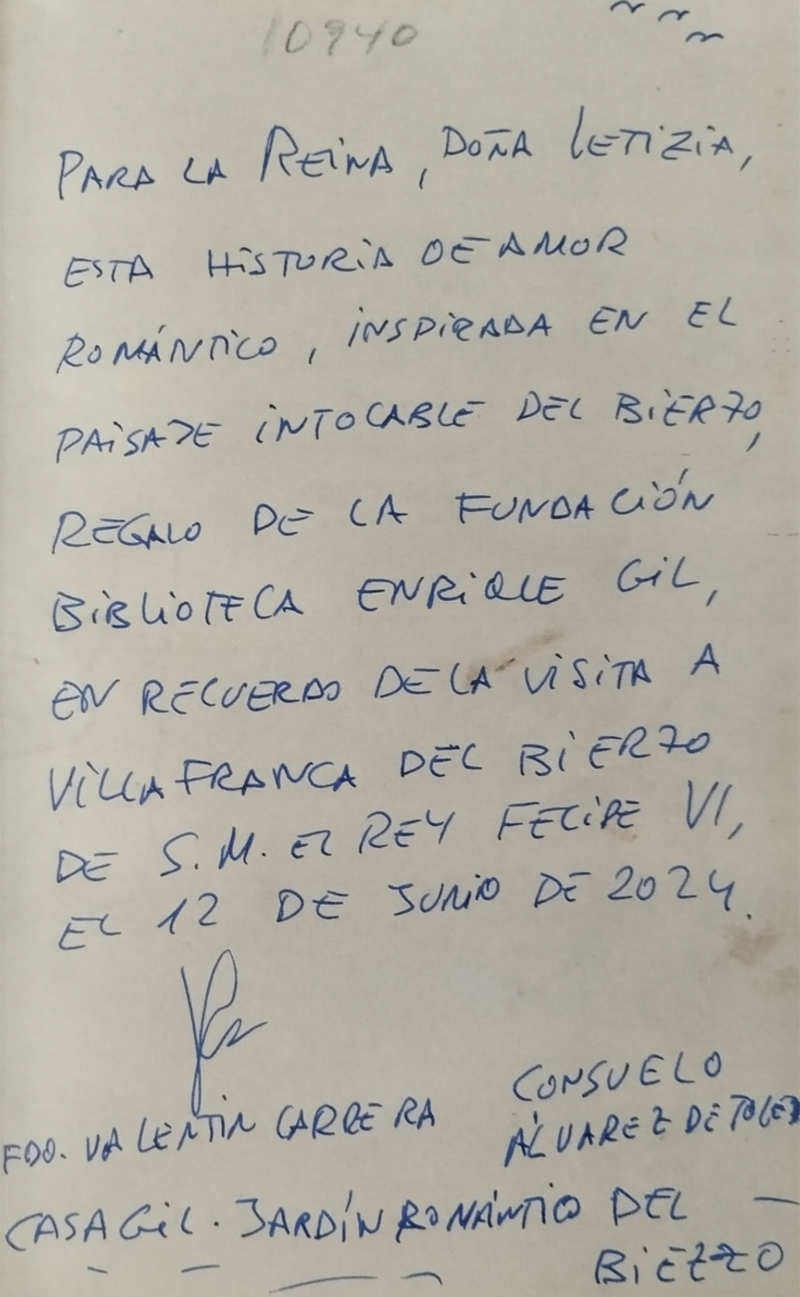 10940
PARA LA REINA, DOÑA LETIZIA,
ESTA HISTORIA DE AMOR
ROMÁNTICO, INSPIRADA EN EL
PAISAJE INTOCABLE DEL BIERZO,
REGALO DE LA FUNDACIÓN
BIBLIOTECA ENRIQUE GIL,
EN RECUERDO DE LA VISITA A
VILLAFRANCA DEL BIERZO
DE S.M. EL REY FELIPE VI,
EL 12 DE JUNIO DE 2024.
FDO. VALENTÍN CARRERA
CONSUELO
ÁLVAREZ DE TOLEDO
CASA GIL. JARDÍN ROMÁNTICO DEL
BIERZO